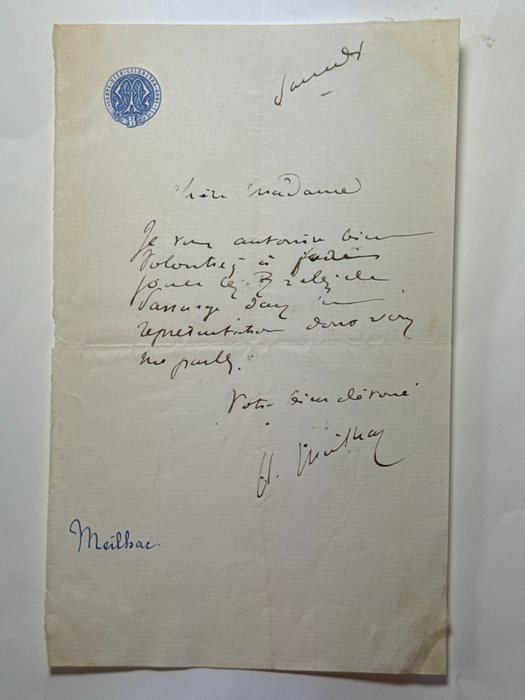 Samedi
Chère Madame
Je vous autorise bien
volontiers à
jouer les Brebis de
Panurge dans la
représentation dont vous
me parlez.
Votre bien dévoué
H. Meilhac
Meilhac.